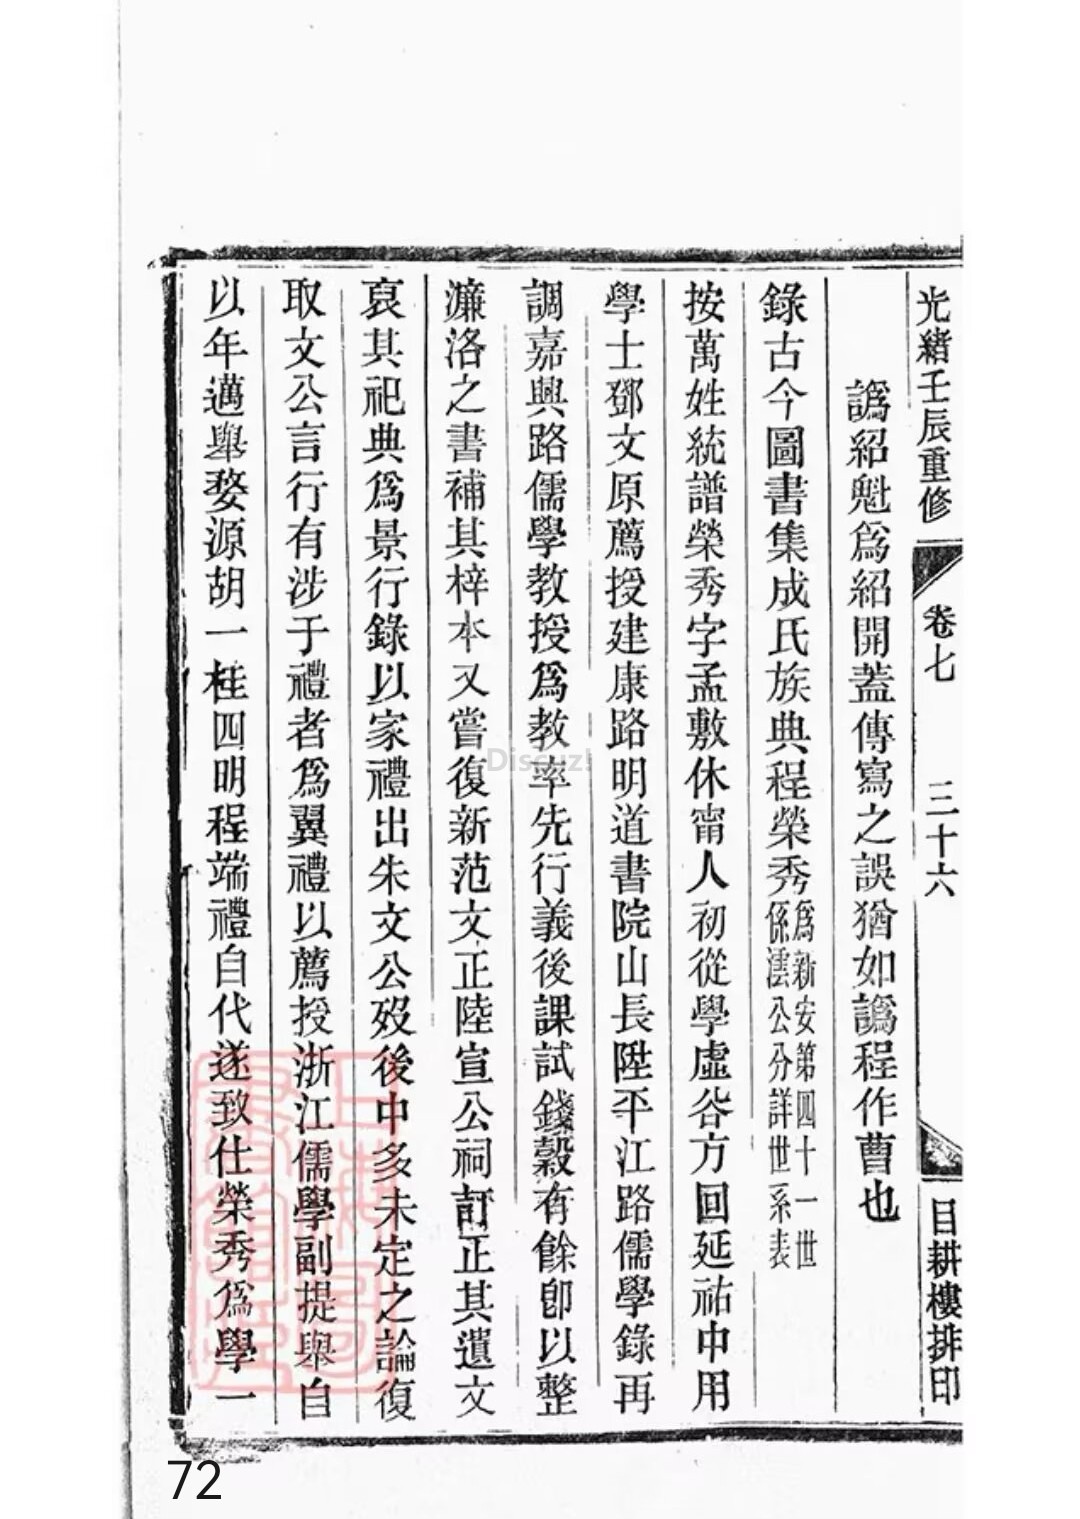 光緒壬辰重修
卷七
三十六
目耕樓排印
譌紹魁爲紹開蓋傳寫之誤猶如譌程作曹也
錄古今圖書集成氏族典程榮秀爲新安第四十一世
係澐公分詳世系表
按萬姓統譜榮秀字孟敷休甯人初從學虛谷方回延祐中用
學士鄧文原薦授建康路明道書院山長陞平江路儒學錄再
調嘉興路儒學教授爲教率先行義後課試錢穀有餘卽以整
濂洛之書補其梓本又嘗復新范文正陸宣公祠訂正其遺文
裒其祀典爲景行錄以家禮出朱文公歿後中多未定之論復
取文公言行有涉于禮者爲翼禮以薦授浙江儒學副提舉自
以年邁舉婺源胡一桂四明程端禮自代遂致仕榮秀爲學一
Discuz!
72